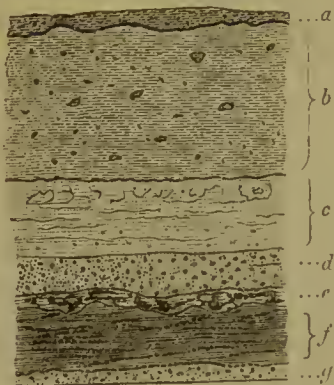 ...a
b
c
...d
...e
f
...g